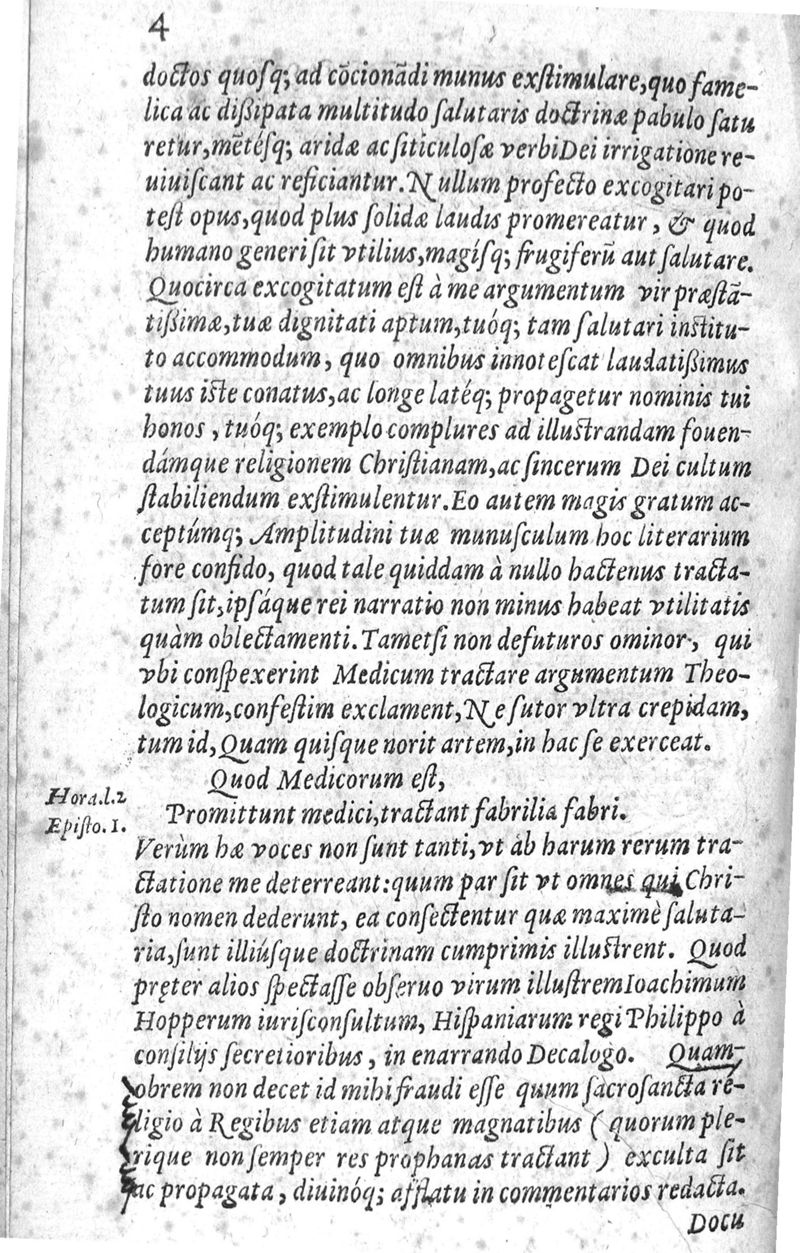 4
doctos quosq; ad cōcionādi munus exstimulare,quo fame-
lica ac dißipata multitudo salutaris doctrinæ pabulo satu
retur,mētésq; aridæ ac siticulosæ verbi Dei irrigatione re-
uiuiscant ac reficiantur. Nullum profecto excogitari po-
test opus,quod plus solidæ laudis promereatur, & quod
humano generi sit vtilius,magísq; frugiferū aut salutare.
Quocirca excogitatum est à me argumentum vir præstā-
tißimæ,tuæ dignitati aptum,tuóq; tam salutari institu-
to accommodum, quo omnibus innotescat laudatißimus
tuus iste conatus,ac longe latéq; propagetur nominis tui
honos, tuóq; exemplo complures ad illustrandam fouen-
dámque religionem Christianam,ac sincerum Dei cultum
stabiliendum exstimulentur. Eo autem magis gratum ac-
ceptúmq; Amplitudini tuæ munusculum hoc literarium
fore confido, quod tale quiddam à nullo hactenus tracta-
tum sit,ipsáque rei narratio non minus habeat vtilitatis
quàm oblectamenti. Tametsi non defuturos ominor, qui
vbi conspexerint Medicum tractare argumentum Theo-
logicum,confestim exclament, Ne sutor vltra crepidam,
tum id, Quam quisque norit artem,in hac se exerceat.
Quod Medicorum est,
Hora.l.2
Promittunt medici,tractant fabrilia fabri.
Episto. 1.
Verùm hæ voces non sunt tanti,vt ab harum rerum tra-
ctatione me deterreant:quum par sit vt omnes qui Chri-
sto nomen dederunt, ea consectentur quæ maximè saluta-
ria,sunt illiúsque doctrinam cumprimis illustrent. Quod
pręter alios spectasse obseruo virum illustrem Ioachimum
Hopperum iurisconsultum, Hispaniarum regi Philippo à
consilijs secretioribus, in enarrando Decalogo. Quam-
obrem non decet id mihi fraudi esse quum sacrosancta re-
ligio à Regibus etiam atque magnatibus ( quorum ple-
rique non semper res prophanas tractant ) exculta sit
ac propagata, diuinóq; afflatu in commentarios redacta.
Docu